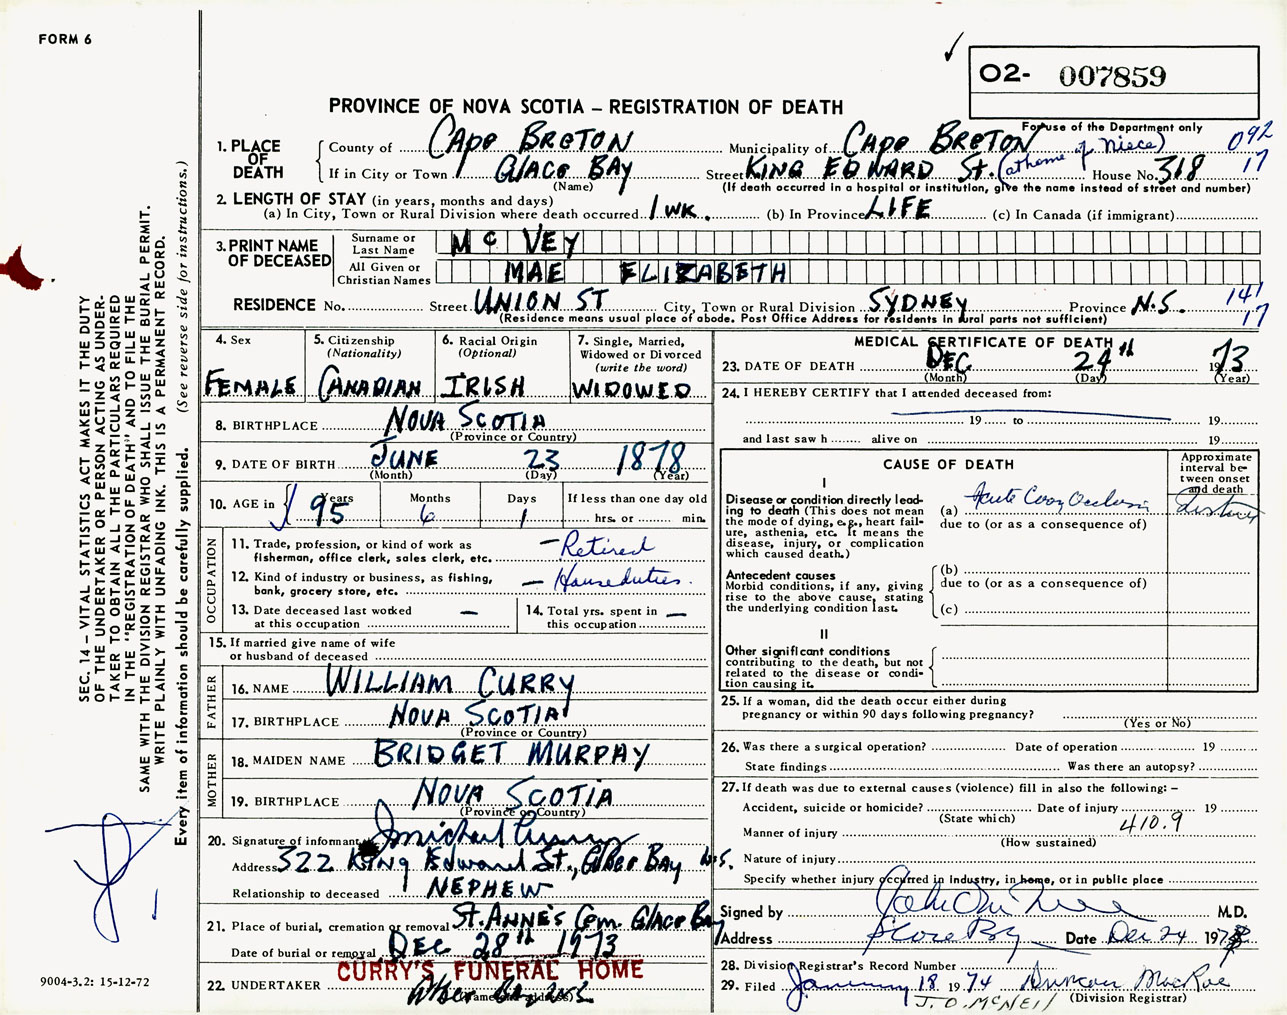 FORM 6
O2- 007859
PROVINCE OF NOVA SCOTIA – REGISTRATION OF DEATH
For use of the Department only
092
17
1. PLACE OF DEATH
County of CAPE BRETON Municipality of CAPE BRETON
If in City or Town GLACE BAY Street KING EDWARD St. (at home of Niece) House No. 318
(Name) (If death occurred in a hospital or institution, give the name instead of street and number)
2. LENGTH OF STAY (in years, months and days)
(a) In City, Town or Rural Division where death occurred 1 WK. (b) In Province LIFE (c) In Canada (if immigrant)
3. PRINT NAME OF DECEASED
Surname or Last Name McVEY
All Given or Christian Names MAE ELIZABETH
RESIDENCE No. Street UNION ST City, Town or Rural Division SYDNEY Province N.S.
141
17
(Residence means usual place of abode. Post Office Address for residents in rural parts not sufficient)
4. Sex FEMALE
5. Citizenship (Nationality) CANADIAN
6. Racial Origin (Optional) IRISH
7. Single, Married, Widowed or Divorced (write the word) WIDOWED
8. BIRTHPLACE NOVA SCOTIA
(Province or Country)
9. DATE OF BIRTH JUNE 23 1878
(Month) (Day) (Year)
10. AGE in Years 95 Months 6 Days 1 If less than one day old
hrs. or min.
OCCUPATION
11. Trade, profession, or kind of work as fisherman, office clerk, sales clerk, etc. – Retired
12. Kind of industry or business, as fishing, bank, grocery store, etc. – Houseduties.
13. Date deceased last worked at this occupation –
14. Total yrs. spent in this occupation –
15. If married give name of wife or husband of deceased
FATHER
16. NAME WILLIAM CURRY
17. BIRTHPLACE NOVA SCOTIA
(Province or Country)
MOTHER
18. MAIDEN NAME BRIDGET MURPHY
19. BIRTHPLACE NOVA SCOTIA
(Province or Country)
20. Signature of informant J Michael Curry
Address 322 King Edward St., Glace Bay N.S.
Relationship to deceased NEPHEW
21. Place of burial, cremation or removal St. ANNE'S Cem. Glace Bay
Date of burial or removal DEC 28th 1973
CURRY'S FUNERAL HOME
22. UNDERTAKER Glace Bay N.S.
(Name and address)
MEDICAL CERTIFICATE OF DEATH
23. DATE OF DEATH DEC 24th 1973
(Month) (Day) (Year)
24. I HEREBY CERTIFY that I attended deceased from:
19 to 19
and last saw h alive on 19
CAUSE OF DEATH
Approximate interval between onset and death
I
Disease or condition directly leading to death (This does not mean the mode of dying, e.g., heart failure, asthenia, etc. It means the disease, injury, or complication which caused death.)
(a) Acute Coronary Occlusion
due to (or as a consequence of)
Antecedent causes
Morbid conditions, if any, giving rise to the above cause, stating the underlying condition last.
(b)
due to (or as a consequence of)
(c)
II
Other significant conditions
contributing to the death, but not related to the disease or condition causing it.
25. If a woman, did the death occur either during pregnancy or within 90 days following pregnancy?
(Yes or No)
26. Was there a surgical operation? Date of operation 19
State findings Was there an autopsy?
27. If death was due to external causes (violence) fill in also the following: –
Accident, suicide or homicide? Date of injury 19
(State which)
410.9
Manner of injury
(How sustained)
Nature of injury
Specify whether injury occurred in industry, in home, or in public place
Signed by M.D.
Address Glace Bay Date Dec 24 1973
28. Division Registrar's Record Number
29. Filed January 18 1974 Duncan MacRae
(Division Registrar)
J. O. McNeil
SEC. 14 – VITAL STATISTICS ACT MAKES IT THE DUTY
OF THE UNDERTAKER OR PERSON ACTING AS UNDER-
TAKER TO OBTAIN ALL THE PARTICULARS REQUIRED
IN THE "REGISTRATION OF DEATH" AND TO FILE THE
SAME WITH THE DIVISION REGISTRAR WHO SHALL ISSUE THE BURIAL PERMIT.
WRITE PLAINLY WITH UNFADING INK. THIS IS A PERMANENT RECORD.
Every item of information should be carefully supplied. (See reverse side for instructions.)
9004-3.2: 15-12-72